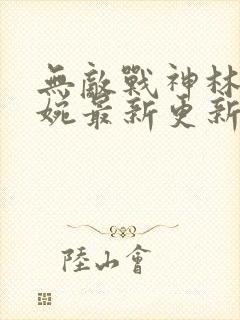 無敵戰神林
婉最新更新
陸山會